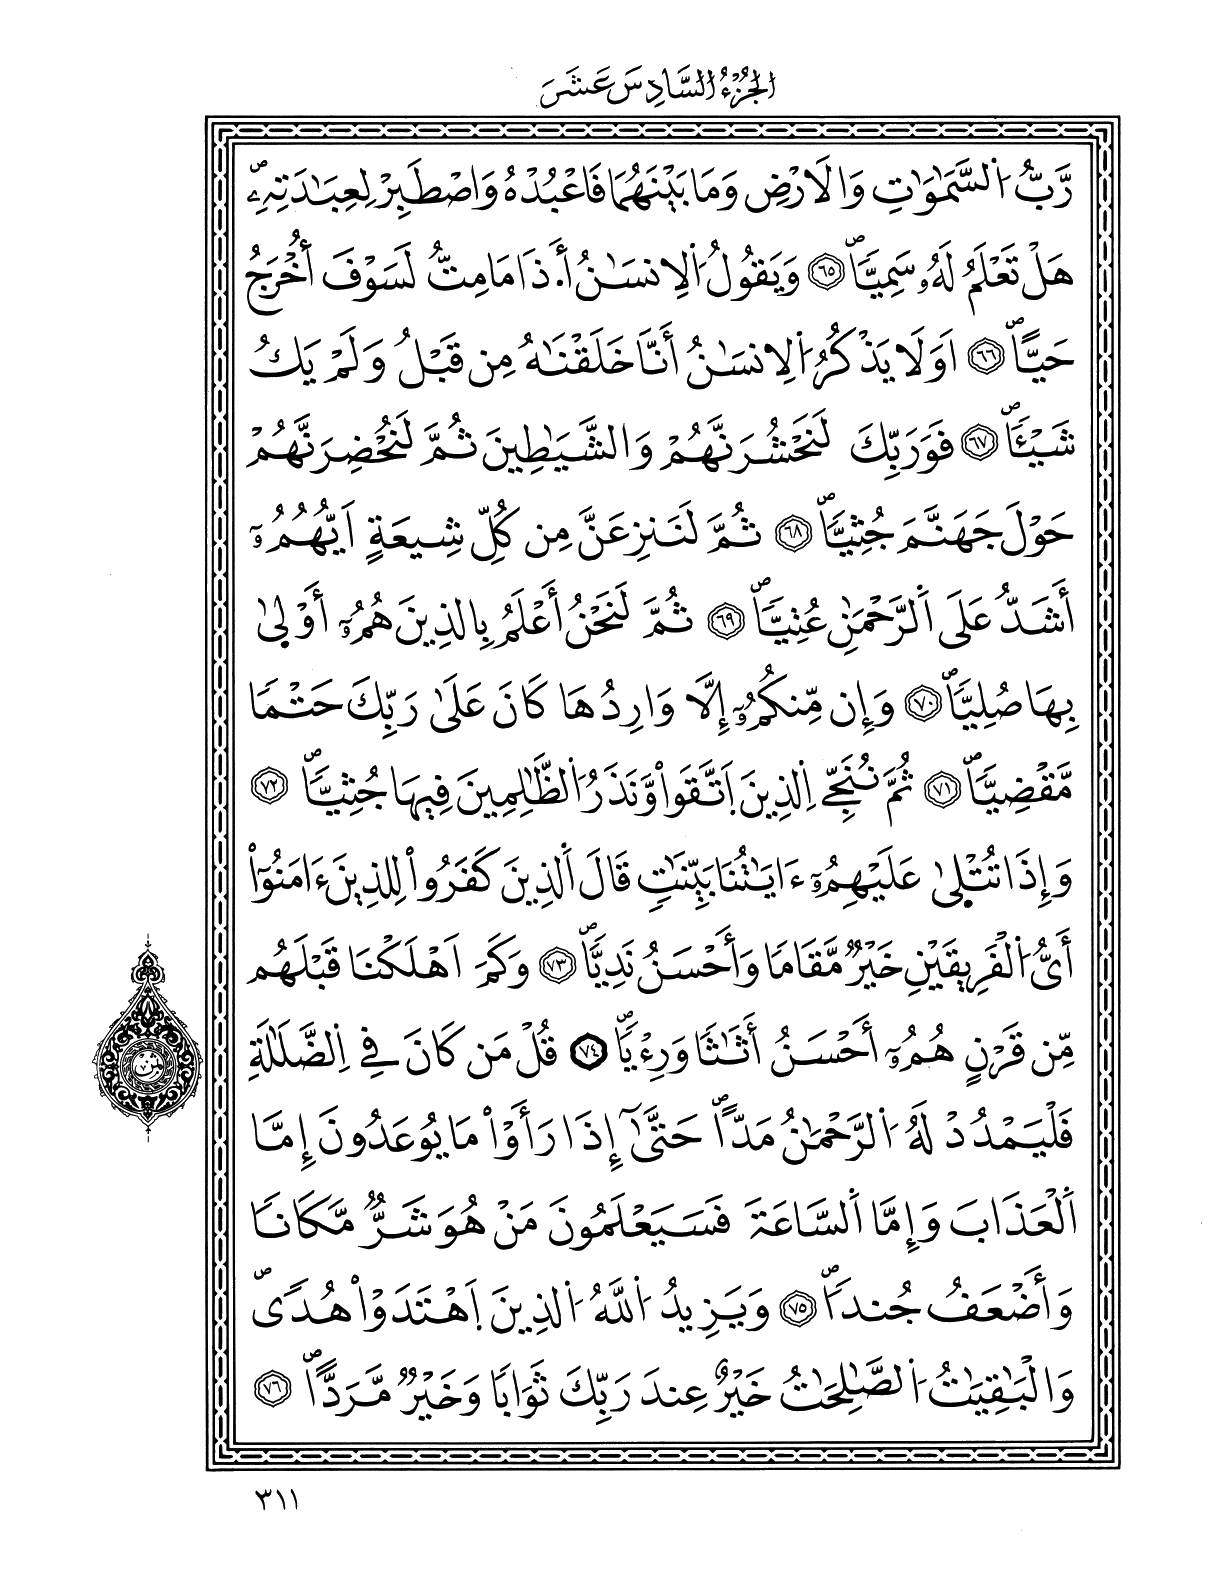 الجزء السادس عشر
رَّبُّ اُ۬لسَّمَٰوَٰتِ وَالَارْضِ وَمَا بَيْنَهُمَا فَاعْبُدْهُ وَاصْطَبِرْ لِعِبَٰدَتِهِۦۖ
هَلْ تَعْلَمُ لَهُۥ سَمِيّاٗۖ ٦٥ وَيَقُولُ اُ۬لِانسَٰنُ أَ.ذَا مَا مِتُّ لَسَوْفَ أُخْرَجُ
حَيّاًۖ ٦٦ اَوَلَا يَذْكُرُ اُ۬لِانسَٰنُ أَنَّا خَلَقْنَٰهُ مِن قَبْلُ وَلَمْ يَكُ
شَيْـٔاٗۖ ٦٧ فَوَرَبِّكَ لَنَحْشُرَنَّهُمْ وَالشَّيَٰطِينَ ثُمَّ لَنُحْضِرَنَّهُمْ
حَوْلَ جَهَنَّمَ جُثِيّاٗۖ ٦٨ ثُمَّ لَنَنزِعَنَّ مِن كُلِّ شِيعَةٍ اَيُّهُمُۥٓ
أَشَدُّ عَلَى اَ۬لرَّحْمَٰنِ عُتِيّاٗۖ ٦٩ ثُمَّ لَنَحْنُ أَعْلَمُ بِالذِينَ هُمُۥٓ أَوْلَىٰ
بِهَا صُلِيّاٗۖ ٧٠ وَإِن مِّنكُمُۥٓ إِلَّا وَارِدُهَا كَانَ عَلَىٰ رَبِّكَ حَتْماٗ
مَّقْضِيّاٗۖ ٧١ ثُمَّ نُنَجِّے اِ۬لذِينَ اَ۪تَّقَواْ وَّنَذَرُ اُ۬لظَّٰلِمِينَ فِيهَا جُثِيّاٗۖ ٧٢
وَإِذَا تُتْلَىٰ عَلَيْهِمُۥٓ ءَايَٰتُنَا بَيِّنَٰتٖ قَالَ اَ۬لذِينَ كَفَرُواْ لِلذِينَ ءَامَنُوٓاْ
أَيُّ اُ۬لْفَرِيقَيْنِ خَيْرٞ مَّقَاماٗ وَأَحْسَنُ نَدِيّاٗۖ ٧٣ وَكَمَ اَهْلَكْنَا قَبْلَهُم
مِّن قَرْنٍ هُمُۥٓ أَحْسَنُ أَثَٰثاٗ وَرِءْياٗۖ ٧٤ قُلْ مَن كَانَ فِے اِ۬لضَّلَٰلَةِ
فَلْيَمْدُدْ لَهُ اُ۬لرَّحْمَٰنُ مَدّاًۖ حَتَّىٰٓ إِذَا رَأَوْاْ مَا يُوعَدُونَ إِمَّا
اَ۬لْعَذَابَ وَإِمَّا اَ۬لسَّاعَةَ فَسَيَعْلَمُونَ مَنْ هُوَ شَرّٞ مَّكَاناٗ
وَأَضْعَفُ جُنداٗۖ ٧٥ وَيَزِيدُ اُ۬للَّهُ اُ۬لذِينَ اَ۪هْتَدَوْاْ هُدىٗۖ
وَالْبَٰقِيَٰتُ اُ۬لصَّٰلِحَٰتُ خَيْرٌ عِندَ رَبِّكَ ثَوَاباٗ وَخَيْرٞ مَّرَدّاًۖ ٧٦
ثمن
٣١١